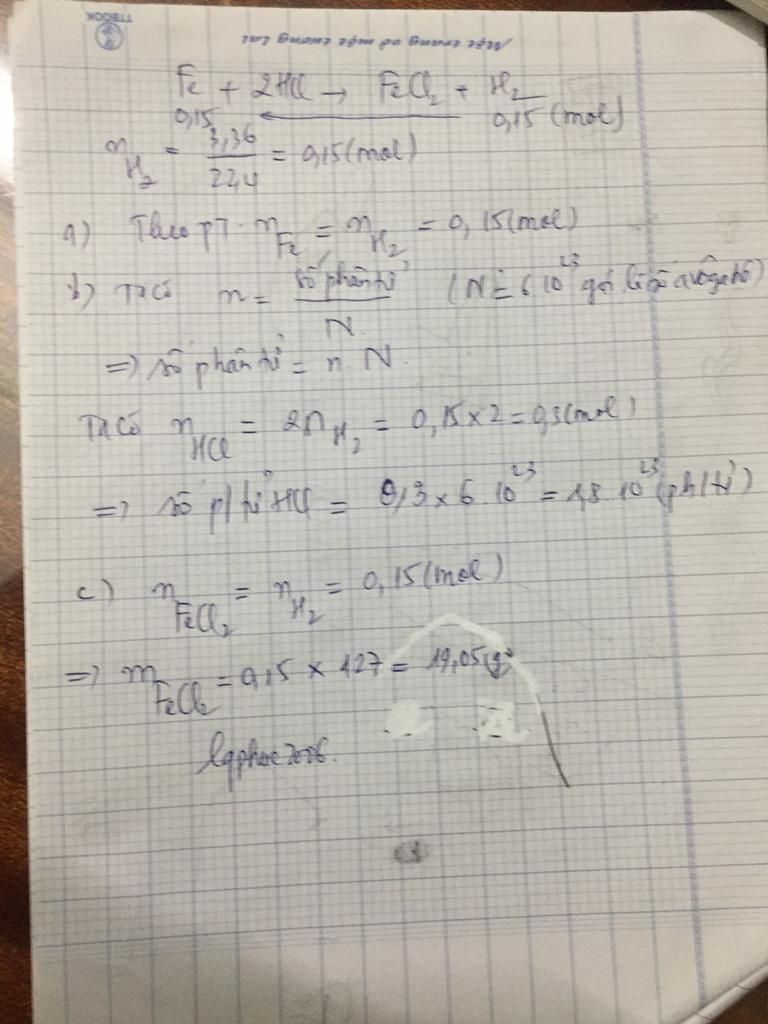 TTBOOK
Một trang vở một tương lai
Fe + 2HCl → FeCl₂ + H₂
0,15 ← 0,15 (mol)
n_H₂ = 3,36/22,4 = 0,15(mol)
a) Theo pT. n_Fe = n_H₂ = 0,15(mol)
b) Ta có n = số phân tử/N (N = 6 10²³ gọi là số avôgađrô)
=> số phân tử = n N.
Ta có n_HCl = 2n_H₂ = 0,15 x 2 = 0,3(mol)
=> số p/tử HCl = 0,3 x 6 10²³ = 1,8 10²³ (ph/tử)
c) n_FeCl₂ = n_H₂ = 0,15(mol)
=> m_FeCl₂ = 0,15 x 127 = 19,05(g)